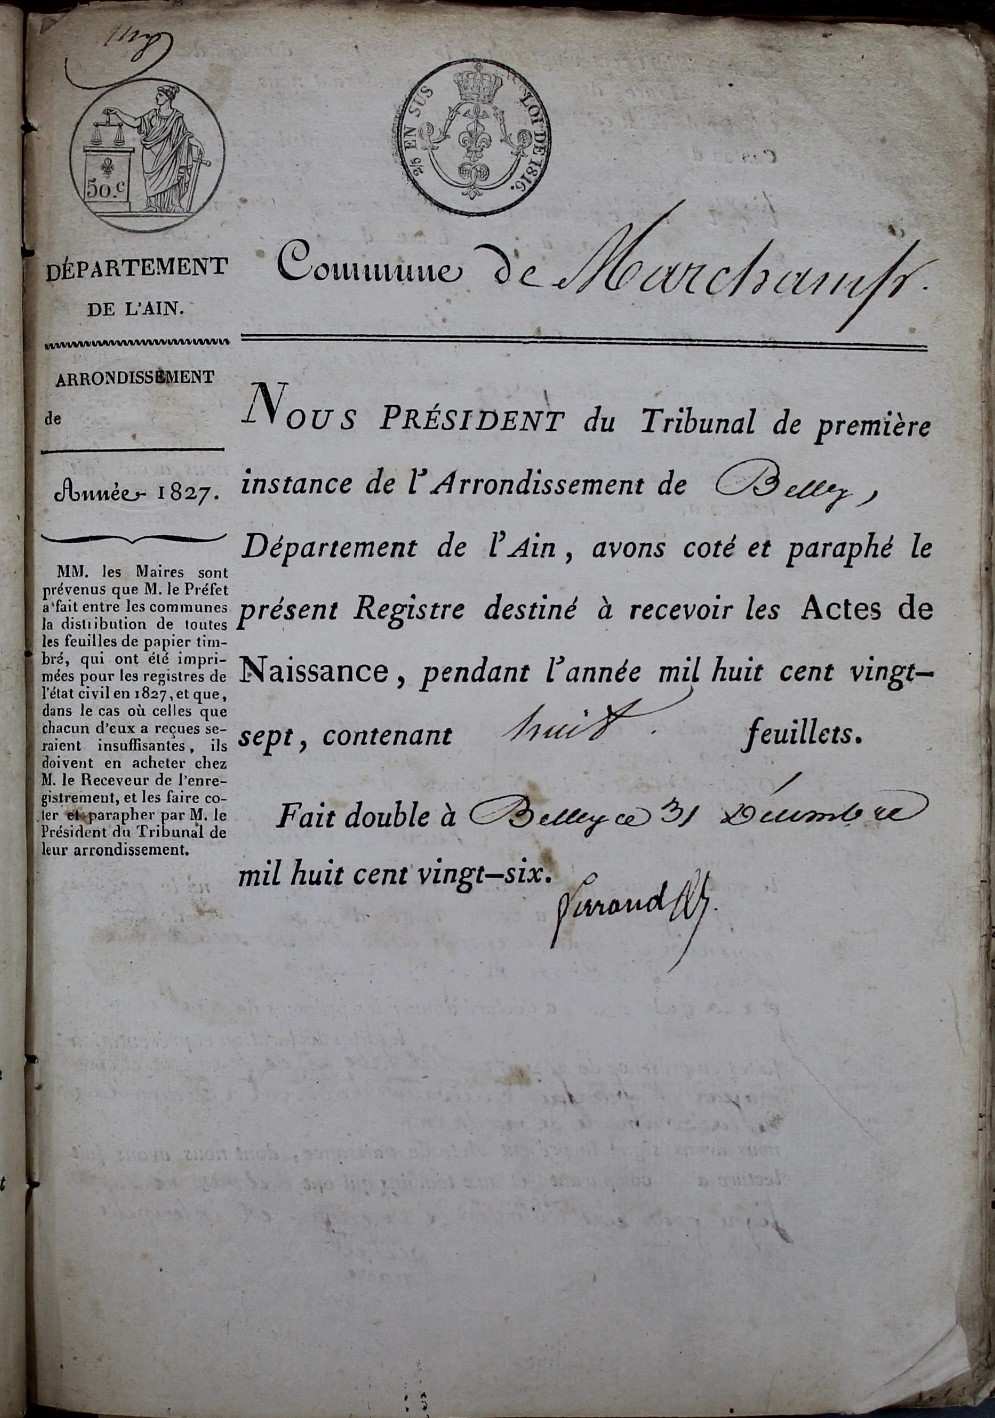 50.c
2/5 EN SUS
LOI DE 1816.
DÉPARTEMENT
DE L'AIN.
ARRONDISSEMENT
de
Année 1827.
MM. les Maires sont
prévenus que M. le Préfet
a fait entre les communes
la distribution de toutes
les feuilles de papier tim-
bré, qui ont été impri-
mées pour les registres de
l'état civil en 1827, et que,
dans le cas où celles que
chacun d'eux a reçues se-
raient insuffisantes, ils
doivent en acheter chez
M. le Receveur de l'enre-
gistrement, et les faire co-
ter et parapher par M. le
Président du Tribunal de
leur arrondissement.
Commune de Marchamp.
NOUS PRÉSIDENT du Tribunal de première
instance de l'Arrondissement de Belley,
Département de l'Ain, avons coté et paraphé le
présent Registre destiné à recevoir les Actes de
Naissance, pendant l'année mil huit cent vingt-
sept, contenant huit feuillets.
Fait double à Belley ce 31 Décembre
mil huit cent vingt-six.